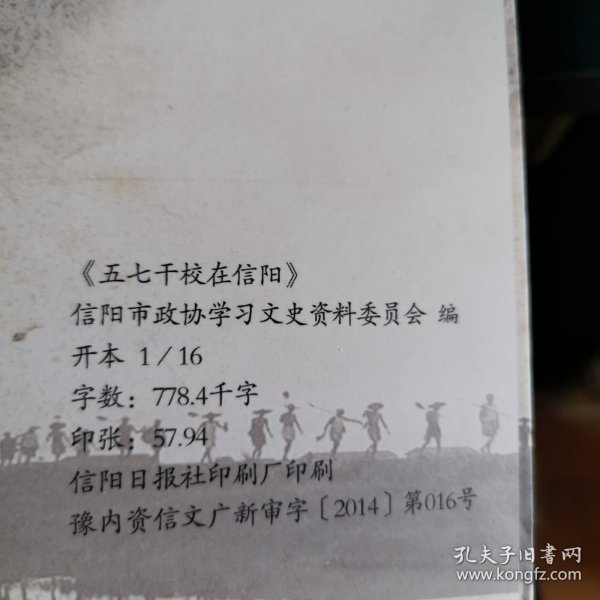 《五七干校在信阳》
信阳市政协学习文史资料委员会 编
开本 1/16
字数：778.4千字
印张：57.94
信阳日报社印刷厂印刷
豫内资信文广新审字〔2014〕第016号
孔夫子旧书网
www.kongfz.com